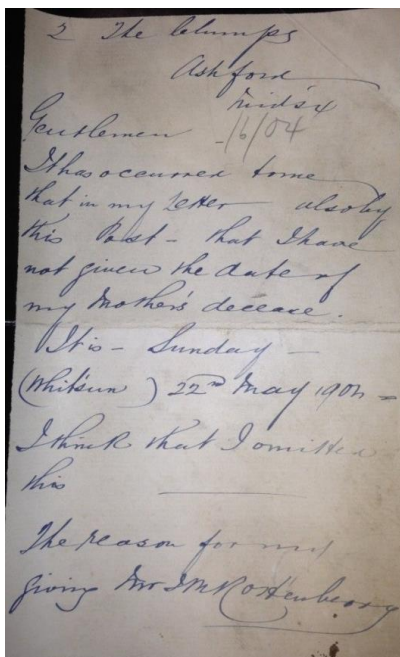 2 The Clumps
Ashford
Midsx
Gentlemen -/6/04
It has occurred to me
that in my letter also by
this Post - that I have
not given the date of
my Mother's decease.
It is - Sunday -
(Whitsun) 22nd May 1904 -
I think that I omitted
this
The reason for my
giving Mr J M Rottenberg